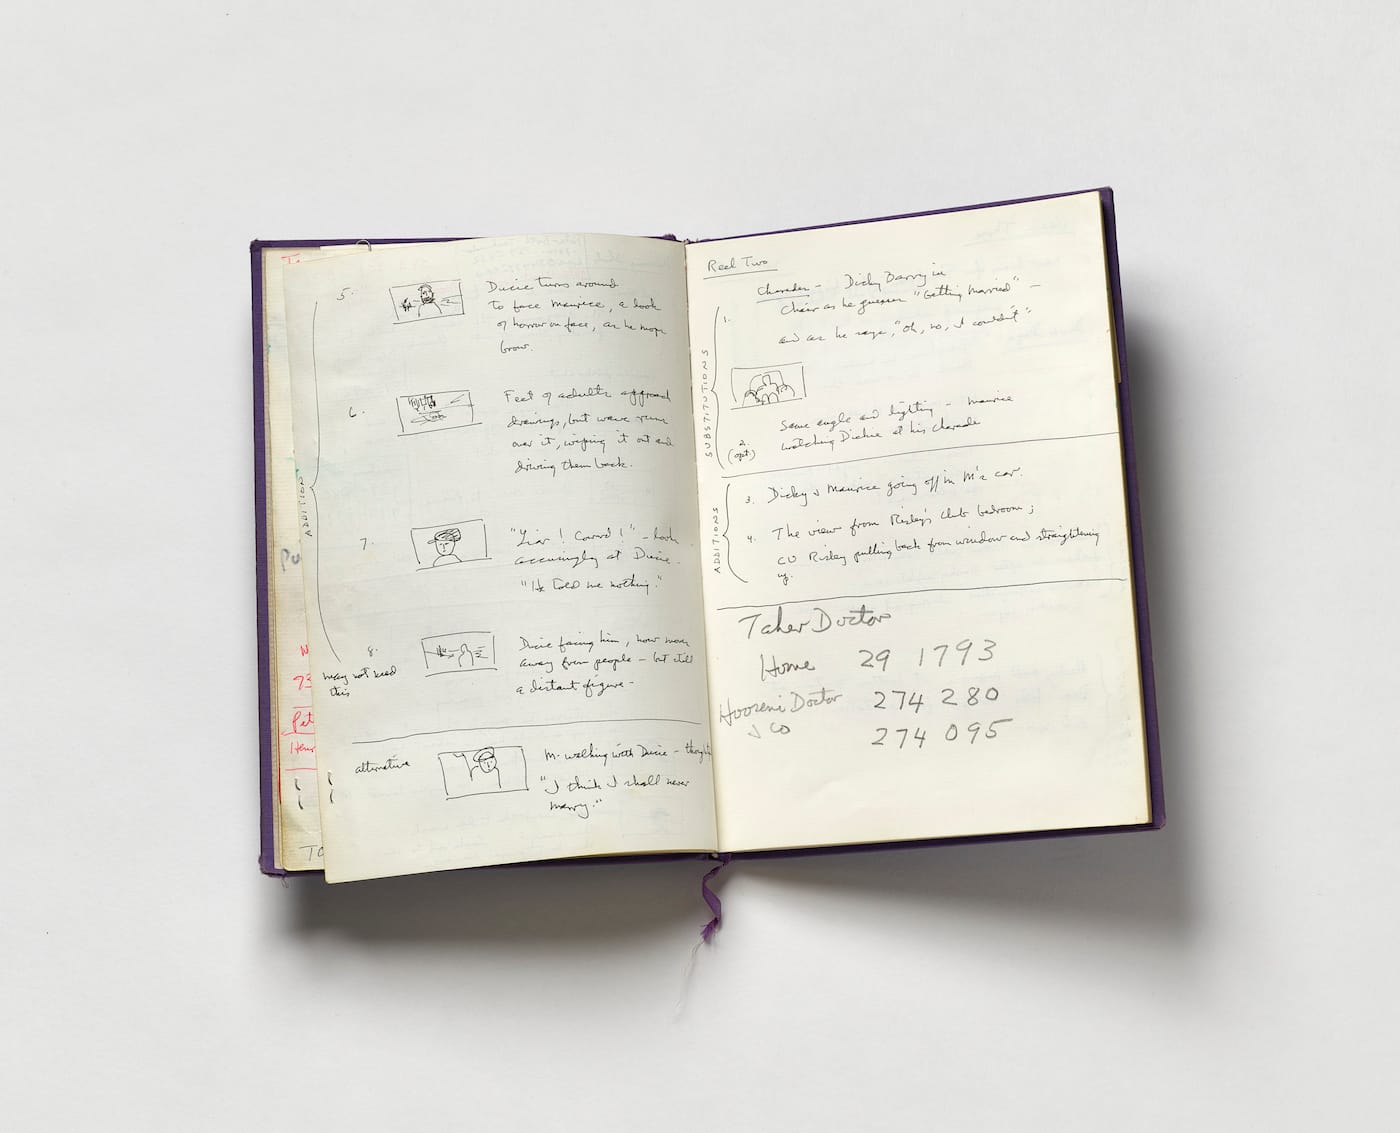 5.
Ducie turns around
to face Maurice, a look
of horror on face, as he mops
brow.
6.
Feet of adults approach
drawings, but wave runs
over it, wiping it out and
driving them back.
7.
"Liar! Coward!" – look
accusingly at Ducie.
"He told me nothing."
8.
may not need
this
Ducie facing him, now moves
away from people – but still
a distant figure –
ADDITION
alternative
M. walking with Ducie –
"I think I shall never
marry."
Reel Two
Charades – Dicky Barry in
1.
chair as he guesses "Getting Married" –
and as he says, "Oh, no, I couldn't"
SUBSTITUTIONS
2.
(opt)
Same angle and lighting – Maurice
watching Dickie at his charade
ADDITIONS
3. Dicky & Maurice going off in M's car.
4. The views from Risley's club bedroom;
CU Risley pulling back from window and straightening
up.
Taher Doctor
Home 29 1793
Hooseni Doctor 274 280
& Co
274 095
To
73
Pet
Henr
TO